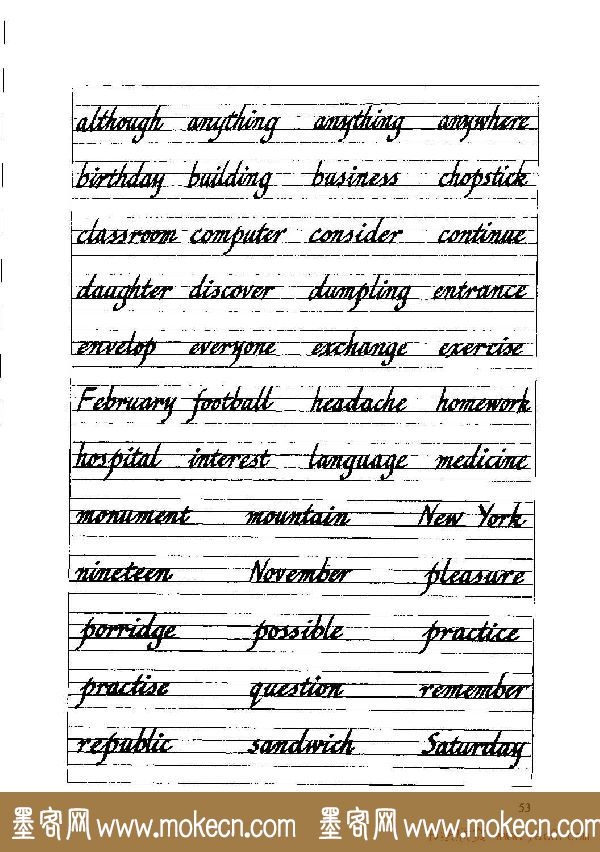 although anything anything anywhere
birthday building business chopstick
classroom computer consider continue
daughter discover dumpling entrance
envelop everyone exchange exercise
February football headache homework
hospital interest language medicine
monument mountain New York
nineteen November pleasure
porridge possible practice
practise question remember
republic sandwich Saturday
53
墨客网 www.mokecn.com 墨客网 www.mokecn.com